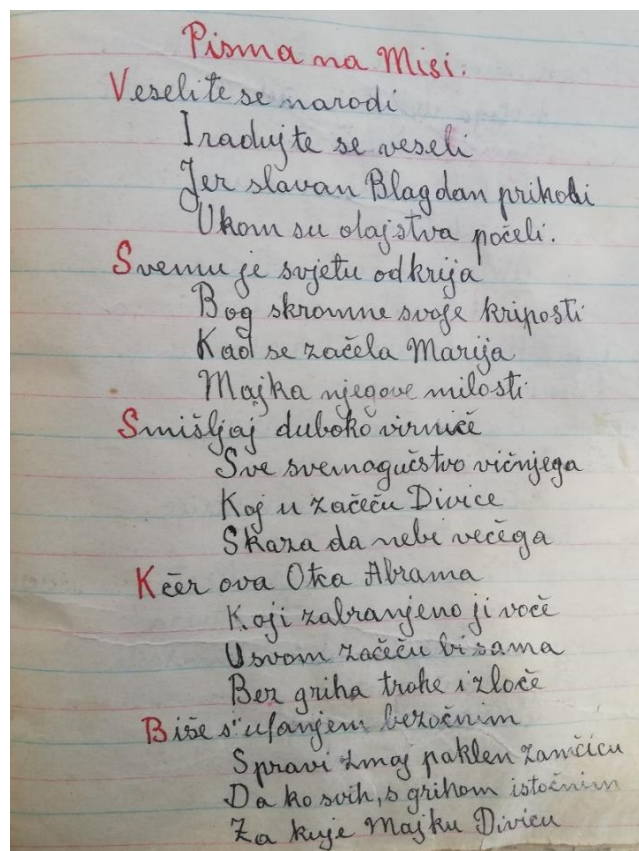 Pisma na Misi.
Veselite se narodi
I radujte se veseli
Jer slavan Blagdan prihodi
Ukom su olajstva počeli.
Svemu je svjetu odkrija
Bog skromne svoje kriposti
Kad se začela Marija
Majka njegove milosti
Smišljaj duboko virniče
Sve svemogučstvo vičnjega
Koj u začeču Divice
Skaza da nebi večega
Kčer ova Otca Abrama
Koji zabranjeno ji voče
U svom začeču bi sama
Bez griha trohe i zloče
Biše s" ufanjem bezočnim
Spravi zmaj paklen
Da ko svih, s grihom istočnim
Za kuje Majku Divicu